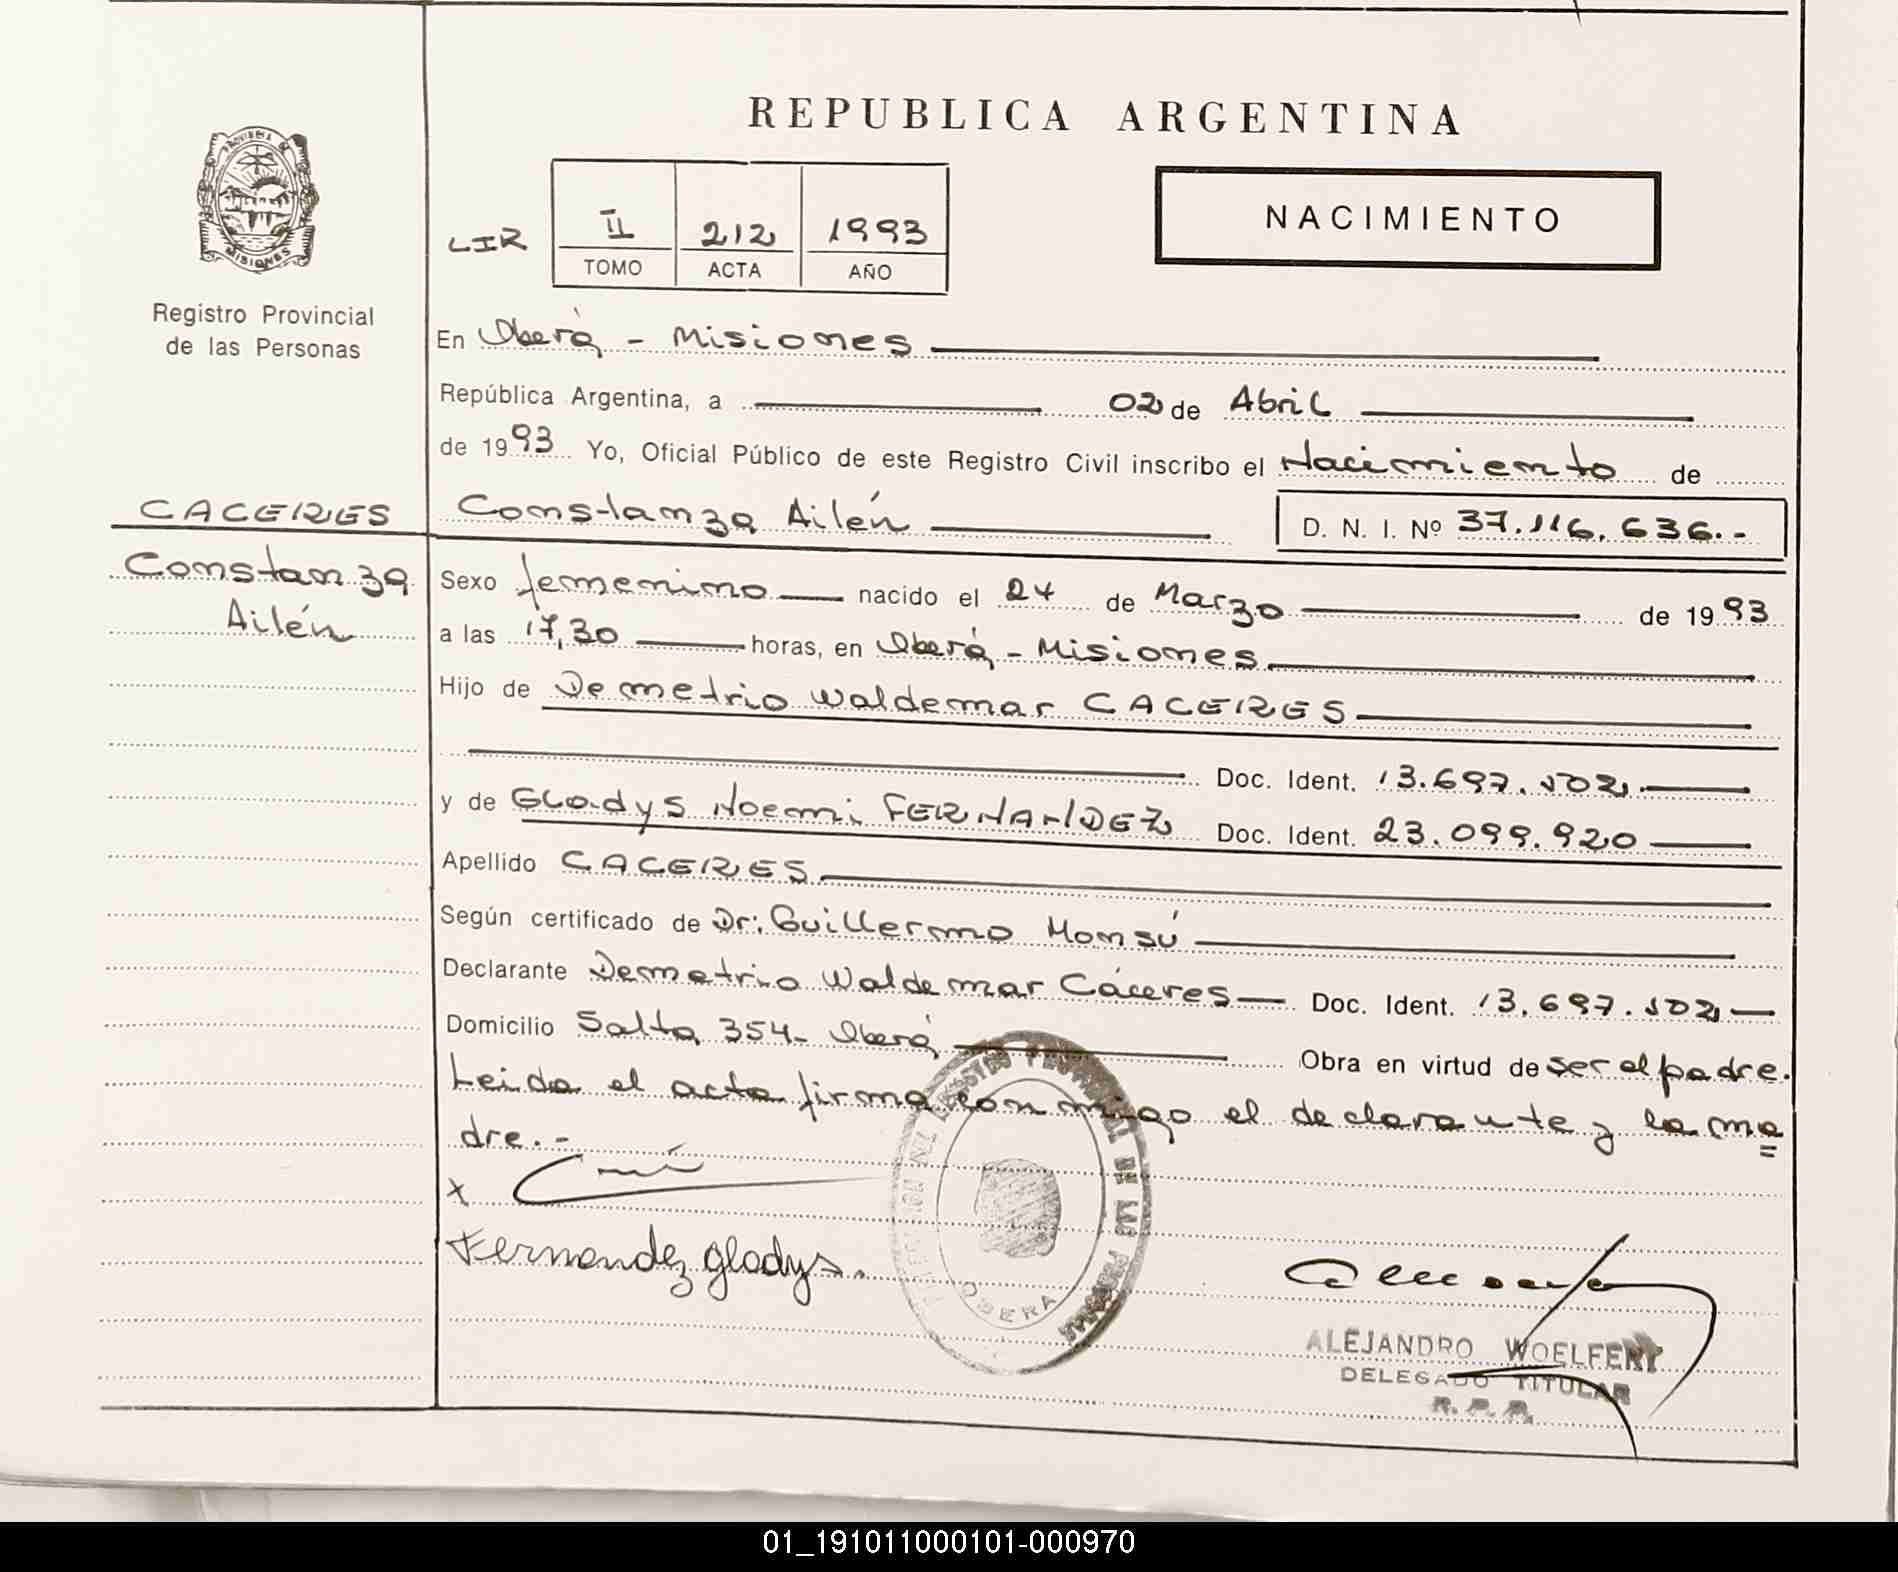 REPUBLICA ARGENTINA
PROVINCIA DE
MISIONES
Registro Provincial
de las Personas
LIR
II 212 1993
TOMO ACTA AÑO
NACIMIENTO
En Oberá - Misiones
República Argentina, a 02 de Abril
de 1993 Yo, Oficial Público de este Registro Civil inscribo el Nacimiento de
CACERES
Constanza
Ailén
Constanza Ailén D. N. I. Nº 37.116.636.-
Sexo femenino nacido el 24 de Marzo de 1993
a las 17,30 horas, en Oberá - Misiones
Hijo de Demetrio Waldemar CACERES
Doc. Ident. 13.697.502.
y de GLadys Noemi FERNANDEZ Doc. Ident. 23.099.920
Apellido CACERES
Según certificado de Dr: Guillermo Monsú
Declarante Demetrio Waldemar Cáceres Doc. Ident. 13.697.502
Domicilio Salta 354- Oberá Obra en virtud de ser el padre.
Leida el acta firma conmigo el declarante y la ma
dre.-
x
Fernandez gladys.
OBERA
ALEJANDRO WOELFERT
DELEGADO TITULAR
R. P. P.
01_191011000101-000970